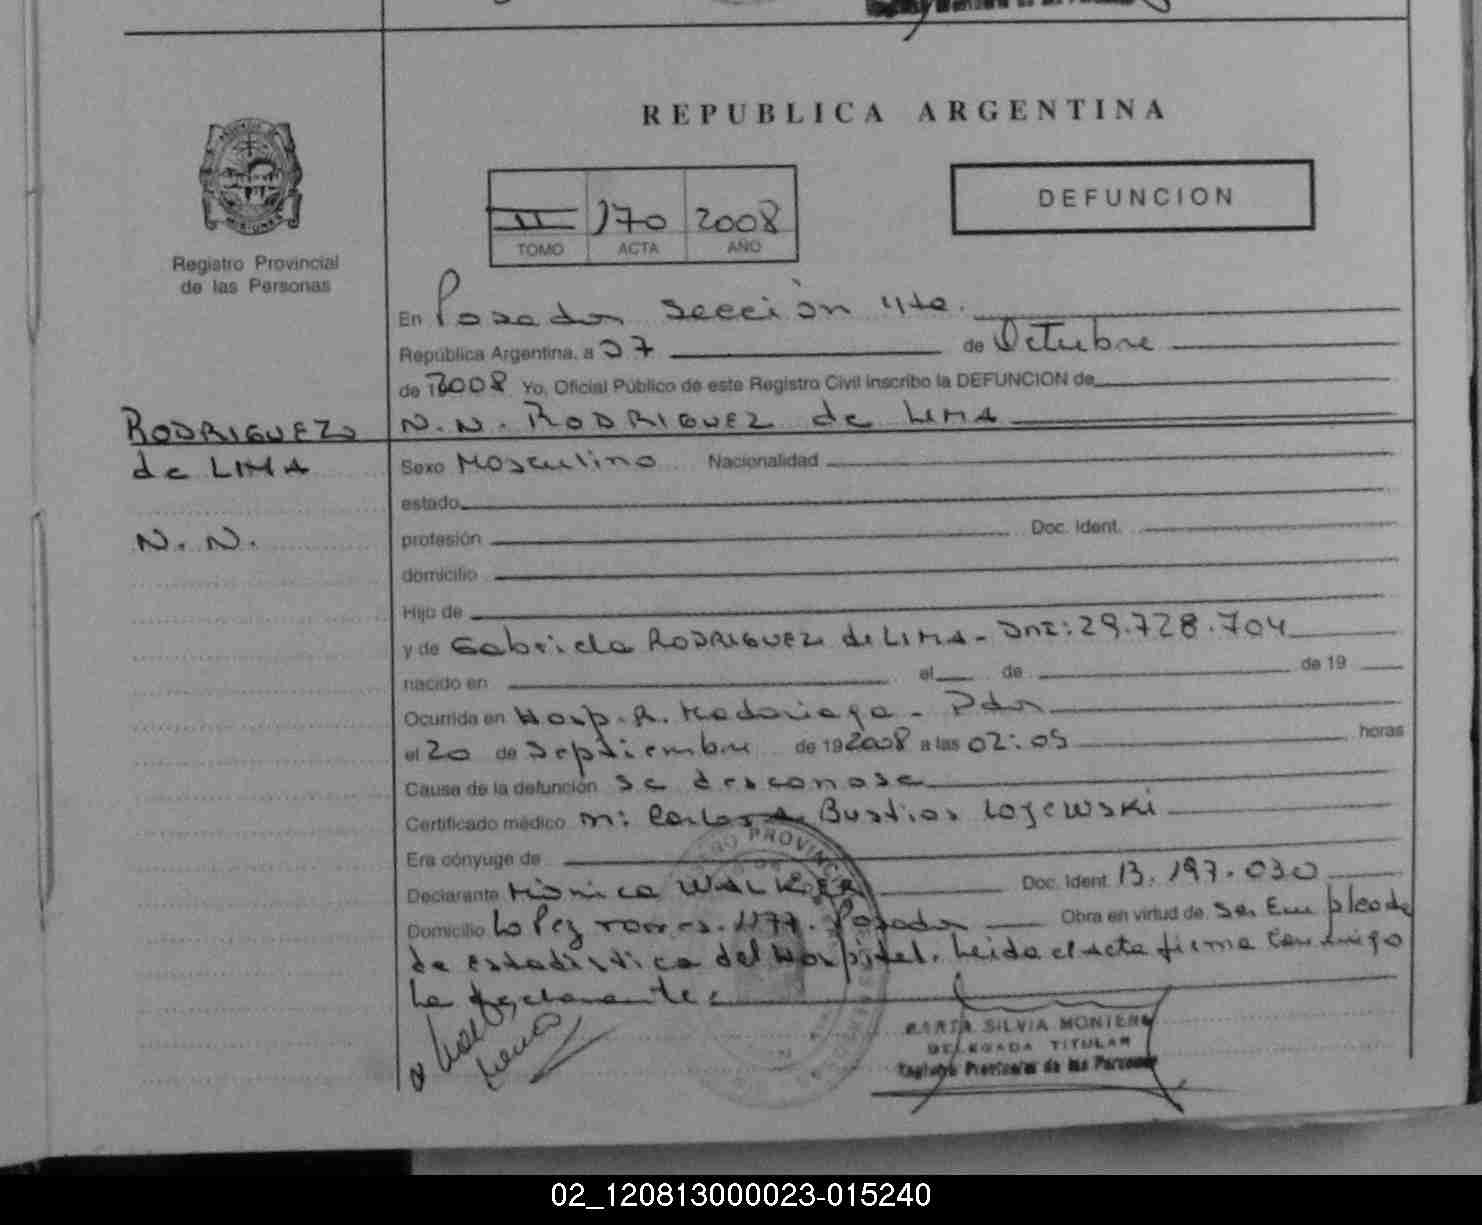 REPUBLICA ARGENTINA
DEFUNCION
II 170 2008
TOMO ACTA AÑO
Registro Provincial
de las Personas
En Posadas Sección 4ta.
República Argentina, a 27 de Octubre
de 2008 Yo, Oficial Público de este Registro Civil inscribo la DEFUNCION de
N.N. RODRIGUEZ de LIMA
RODRIGUEZ
de LIMA
N. N.
Sexo Masculino Nacionalidad
estado
profesión Doc. Ident.
domicilio
Hijo de
y de Gabriela RODRIGUEZ de LIMA - DNI: 29.728.704
nacido en el de de 19
Ocurrida en Hosp. R. Madariaga - Pdas
el 20 de Septiembre de 19 2008 a las 02:05 horas
Causa de la defunción se desconose
Certificado médico M: Carlos A. Bustios Lojewski
Era cónyuge de
Declarante Mónica WALKER Doc. Ident. 13.197.030
Domicilio Lopez Torres. 1177. Posadas Obra en virtud de ser Empleada
de estadistica del Hospital. Leida el acta firma conmigo
La declarante:
MARTA SILVIA MONTERO
DELEGADA TITULAR
Registro Provincial de las Personas
02_120813000023-015240